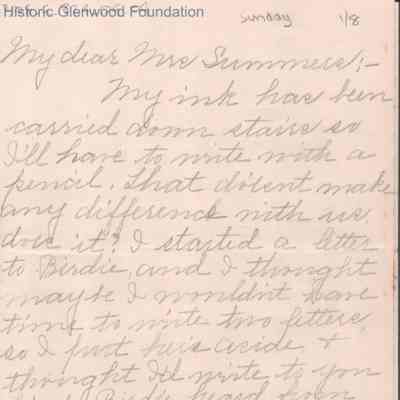 Historic Glenwood Foundation
Sunday 1/8
My dear Mrs Summers:-
My ink has been
carried down stairs so
I'll have to write with a
pencil. That doesent make
any difference with us
does it? I started a letter
to Birdie, and I thought
maybe I wouldn't have
time to write two letters
so I put her's aside +
thought I'd write to you
Birdie heard from